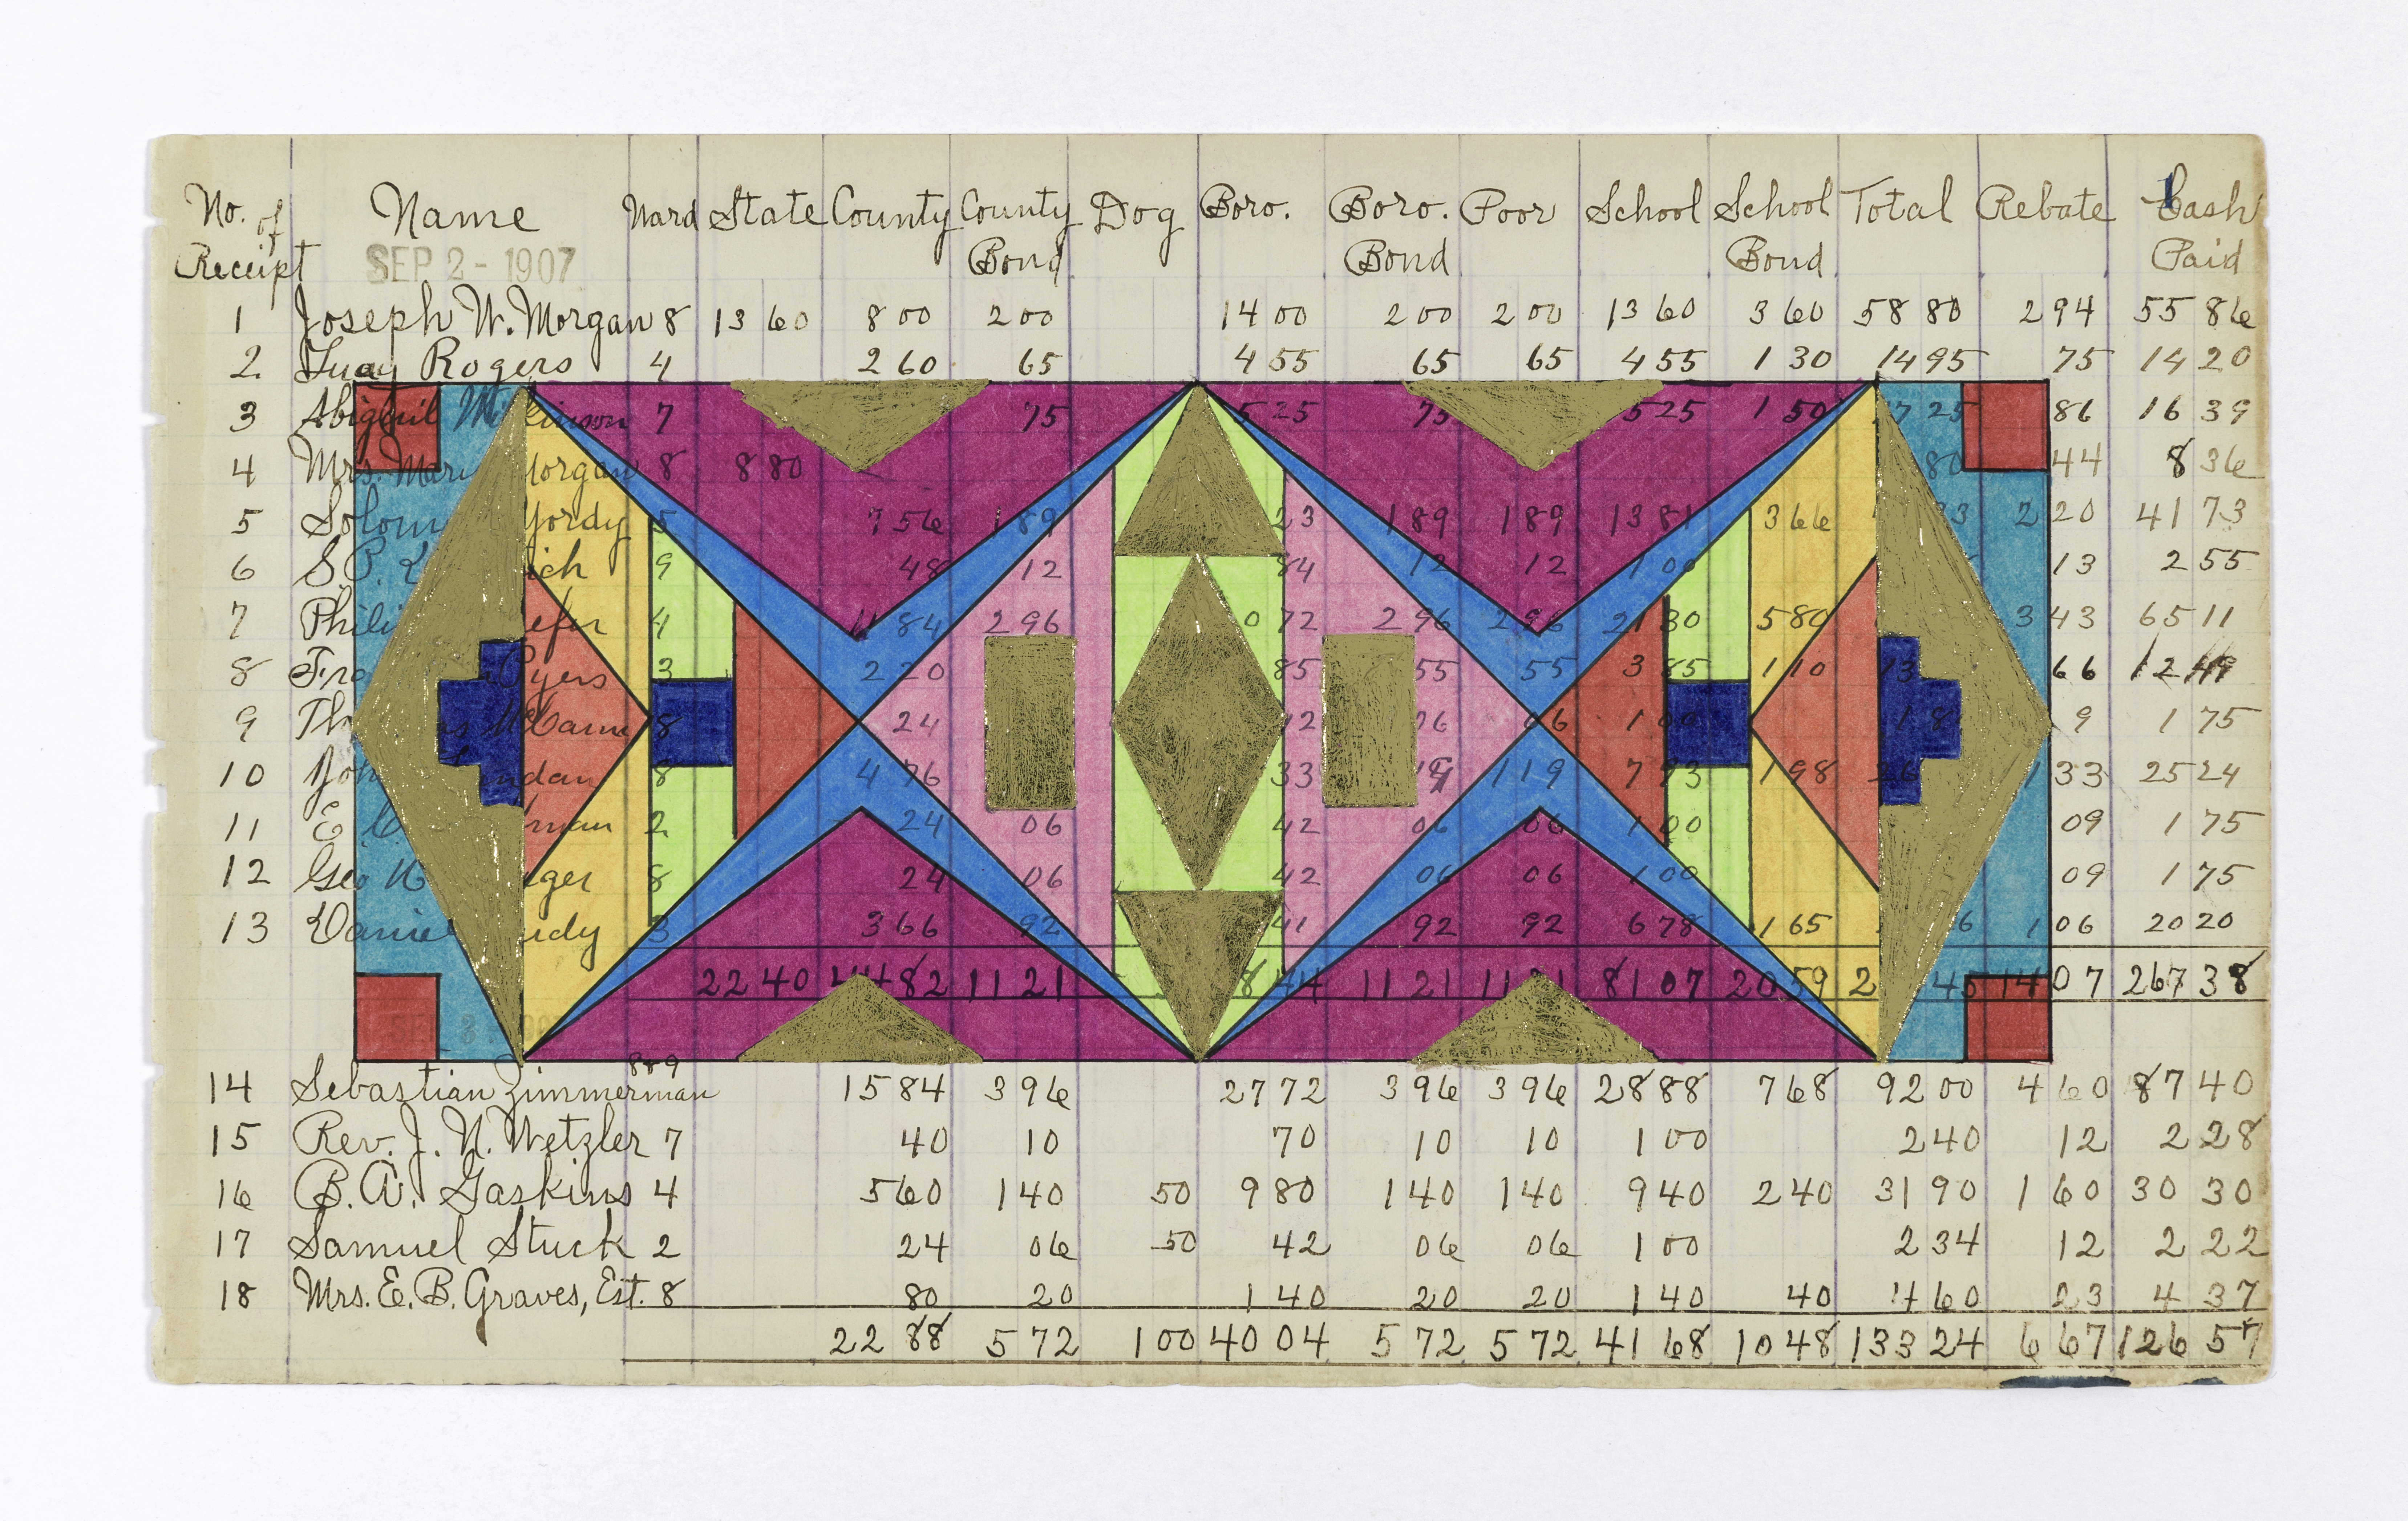 No. of Name Ward State County County Dog Boro. Boro. Poor School School Total Rebate Cash
Receipt SEP 2 - 1907 Bond Bond Bond Paid
1 Joseph W. Morgan 8 13 60 8 00 2 00 14 00 2 00 2 00 13 60 3 60 58 80 2 94 55 86
2 Rogers 4 2 60 65 4 55 65 65 4 55 1 30 14 95 75 14 20
3 Abigail 7 75 5 25 75 5 25 1 50 7 25 86 16 39
4 Mrs. Mar organ 8 8 80 80 44 8 36
5 Solom Yordy 5 7 56 1 89 23 1 89 1 89 13 81 3 66 93 2 20 41 73
6 S.P. ich 9 48 12 84 12 12 1 00 13 2 55
7 Phili efer 4 11 84 2 96 0 72 2 96 2 96 21 30 5 80 3 43 65 11
8 Fra yers 3 2 20 85 55 55 3 85 1 10 13 66 12 49
9 Th 8 24 42 06 06 1 00 1 8 9 1 75
10 ndan 8 4 76 33 1 19 7 93 1 98 26 1 33 25 24
11 E man 2 24 06 42 06 06 1 00 09 1 75
12 Geo ger 8 24 06 42 06 06 1 00 09 1 75
13 Daniel rdy 3 3 66 92 41 92 92 6 78 1 65 6 1 06 20 20
22 40 44 82 11 21 8 44 11 21 11 21 81 07 20 59 2 45 14 07 267 38
889
14 Sebastian Zimmerman 15 84 3 96 27 72 3 96 3 96 28 88 7 68 92 00 4 60 87 40
15 Rev. J. N. Wetzler 7 40 10 70 10 10 1 00 2 40 12 2 28
16 B. A. Gaskins 4 5 60 1 40 50 9 80 1 40 1 40 9 40 2 40 31 90 1 60 30 30
17 Samuel Stuck 2 24 06 50 42 06 06 1 00 2 34 12 2 22
18 Mrs. E. B. Graves, Est. 8 80 20 1 40 20 20 1 40 40 4 60 23 4 37
22 88 5 72 1 00 40 04 5 72 5 72 41 68 10 48 133 24 6 67 126 57